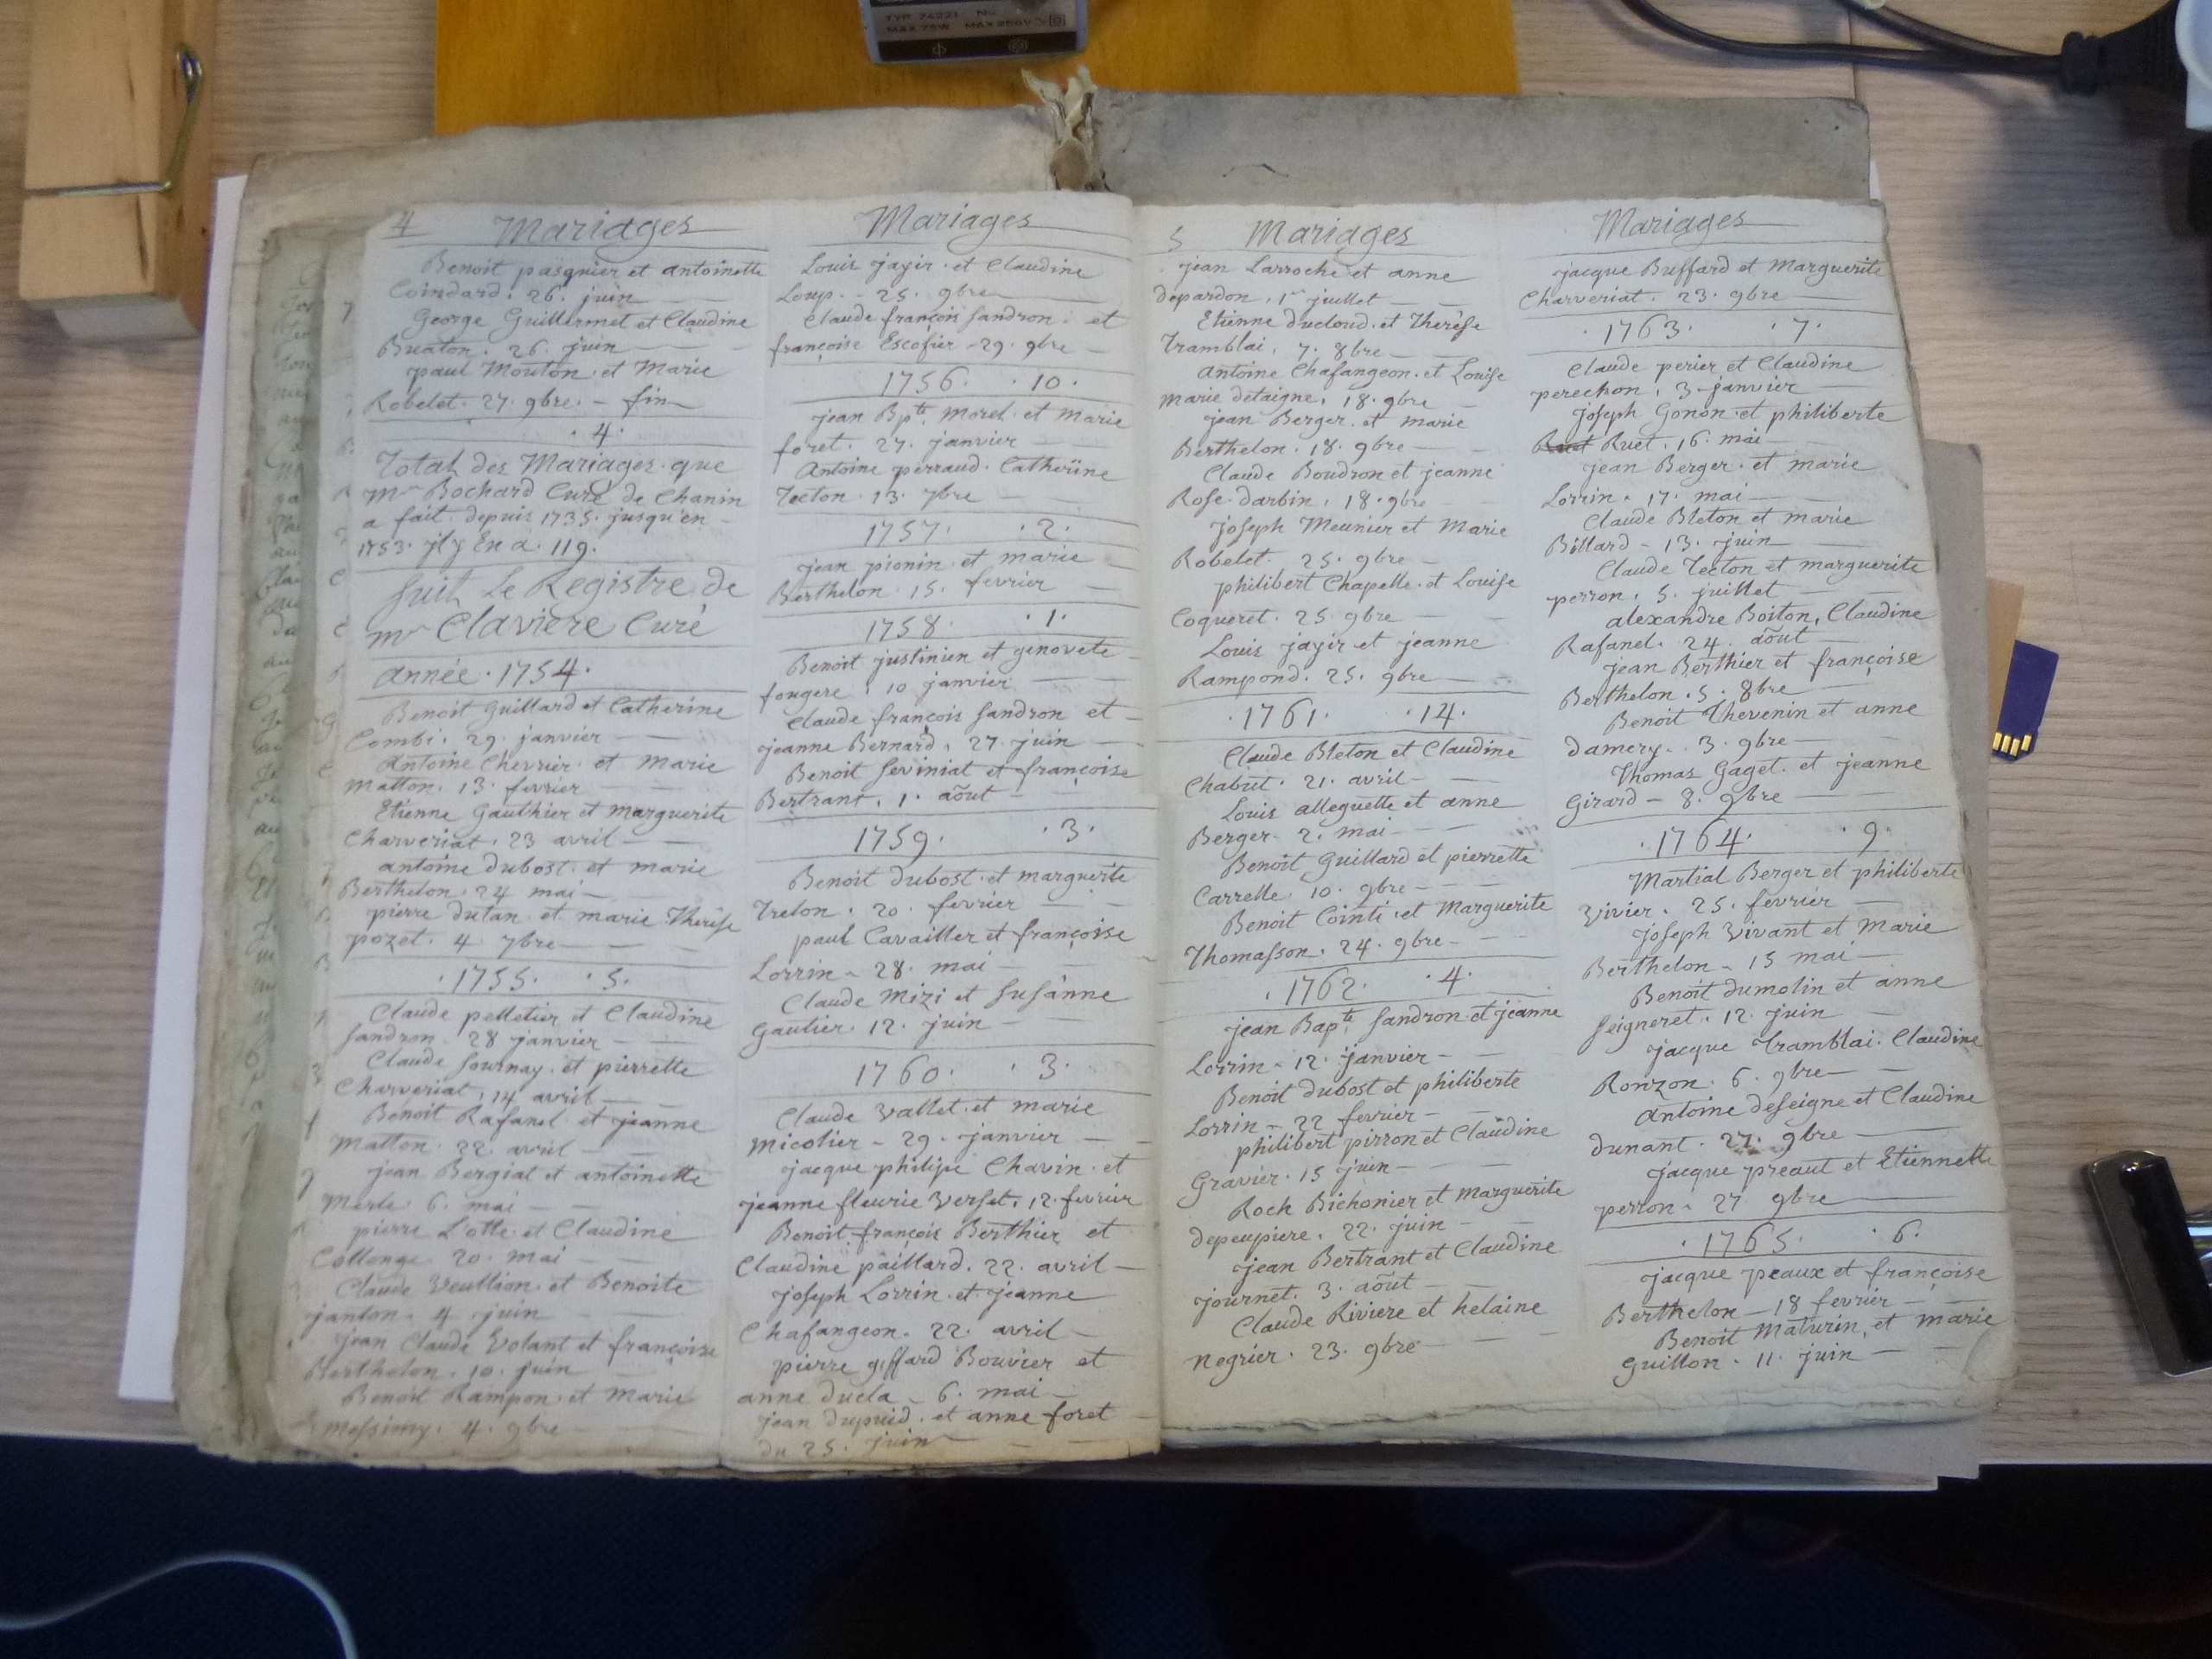 TYP 74221
MAX 75W MAX 250V
4 Mariages
Benoit pasquier et antoinette
Coindard. 26. juin
George Guillermet et Claudine
Buaton. 26. juin
paul Mouton et Marie
Robelet. 27. 9bre. - fin
. 4 .
Total des Mariages que
Mr Bochard Curé de Chanin
a fait depuis 1735. jusqu'en
1753. il y En a. 119.
Suit Le Registre de
mr Claviere Curé
année . 1754 .
Benoit Guillard et Catherine
Combi. 29. janvier
Antoine Chevrier et Marie
Matton. 13. fevrier
Etienne Gauthier et Marguerite
Charveriat. 23 avril
antoine dubost et marie
Berthelon. 24 mai
pierre dutan et marie Therese
pozet. 4 7bre
. 1755 . . 5 .
Claude pelletier et Claudine
Sandron 28 janvier
Claude Sournay et pierrette
Charveriat. 14 avril
Benoit Rafanel et jeanne
Matton. 22. avril
jean Bergiat et antoinette
Merle. 6. mai
pierre Lotte et Claudine
Collonge 20. mai
Claude Veullion et Benoite
janton. 4 juin
jean Claude Volant et françoise
Berthelon. 10. juin
Benoit Rampon et Marie
Messimy. 4. 9bre
Mariages
Louis jayir et Claudine
Loup. - 25. 9bre
Claude françois Sandron et
françoise Escofier - 29. 9bre
1756. . 10 .
jean Bpte Morel et Marie
foret. 27. janvier
Antoine perraud. Catherine
Tecton. 13. 7bre
1757. . 2 .
jean pionin et marie
Berthelon. 15. fevrier
1758. . 1 .
Benoit justinien et genovete
fougere. 10 janvier
Claude françois Sandron et
jeanne Bernard. 27. juin
Benoit Seviniat et françoise
Bertrant. 1. août
1759. . 3 .
Benoit dubost et marguerite
Trelon. 20. fevrier
paul Cavailler et françoise
Lorrin - 28. mai
Claude Mizi et Susanne
Gautier. 12. juin
1760. . 3 .
Claude Vallet et marie
Micolier - 29. janvier
jacque philipe Chavin et
jeanne fleurie Verset. 12. fevrier
Benoit françois Berthier et
Claudine paillard. 22. avril
joseph Lorrin et jeanne
Chafangeon. 22. avril
pierre giffard Bouvier et
anne ducla - 6. mai
jean dupuid. et anne foret
du 25. juin
5 Mariages
jean Larroche et anne
depardon. 1er juillet
Etienne ducloud et Therèse
Tramblai. 7. 8bre
Antoine Chafangeon et Louise
Marie detaigne. 18. 9bre
jean Berger et marie
Berthelon. 18. 9bre
Claude Boudron et jeanne
Rose darbin. 18. 9bre
joseph Meunier et Marie
Robelet. 25. 9bre
philibert Chapelle et Louise
Coqueret. 25. 9bre
Louis jayir et jeanne
Rampond. 25. 9bre
. 1761 . . 14 .
Claude Bleton et Claudine
Chabut. 21. avril
Louis alleguette et anne
Berger. 2. mai
Benoit Guillard et pierrette
Carrelle 10. 9bre
Benoit Cointi et Marguerite
Thomasson. 24. 9bre
. 1762 . . 4 .
jean Bapte Sandron et jeanne
Lorrin - 12. janvier
Benoit dubost et philiberte
Lorrin - 22 fevrier
philibert pirron et Claudine
Gravier. 15 juin
Roch Bichonier et Marguerite
depeupiere. 22. juin
jean Bertrant et Claudine
journet. 3. août
Claude Riviere et helaine
negrier. 23. 9bre
Mariages
jacque Buffard et Marguerite
Charveriat. 23. 9bre
. 1763 . . 7 .
Claude perier et Claudine
perechon. 3. janvier
joseph Gonon et philiberte
Ruet. 16. mai
jean Berger et marie
Lorrin. 17. mai
Claude Bleton et marie
Billard - 13. juin
Claude Tecton et marguerite
perron. 5. juillet
alexandre Boiton, Claudine
Rafanel. 24. août
jean Berthier et françoise
Berthelon. 5. 8bre
Benoit Thevenin et anne
damery. 3. 9bre
Thomas Gaget et jeanne
Girard - 8. 9bre
. 1764 . . 9 .
Martial Berger et philiberte
Vivier. 25. fevrier
joseph Vivant et Marie
Berthelon - 15 mai
Benoit dumolin et anne
Seigneret. 12. juin
jacque Tramblai. Claudine
Ronzon. 6. 9bre
Antoine deseigne et Claudine
dunant. 27. 9bre
jacque preaut et Etiennette
perron. 27. 9bre
. 1765 . . 6 .
jacque peaux et françoise
Berthelon - 18 fevrier
Benoit Maturin et marie
Guillon. 11. juin